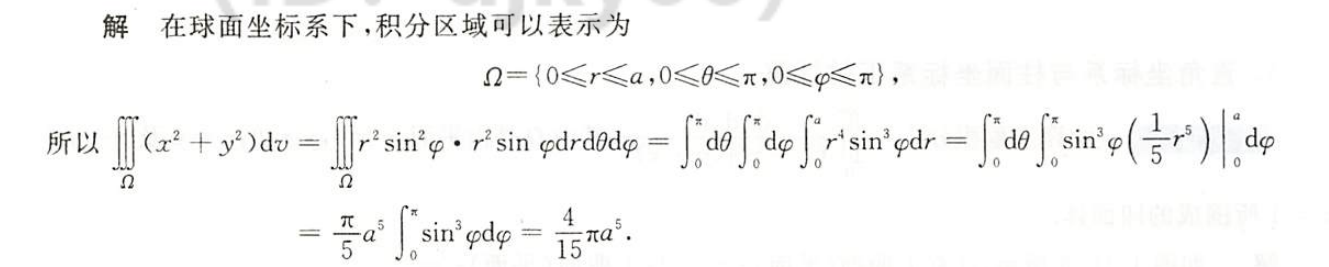 解 在球面坐标系下,积分区域可以表示为
Ω={0≤r≤a,0≤θ≤π,0≤φ≤π},
所以 ∭_Ω (x²+y²)dv = ∭_Ω r²sin²φ · r²sin φdrdθdφ = ∫₀^π dθ ∫₀^π dφ ∫₀^a r⁴sin³φdr = ∫₀^π dθ ∫₀^π sin³φ(1/5 r⁵)|₀^a dφ
= π/5 a⁵ ∫₀^π sin³φdφ = 4/15 πa⁵.